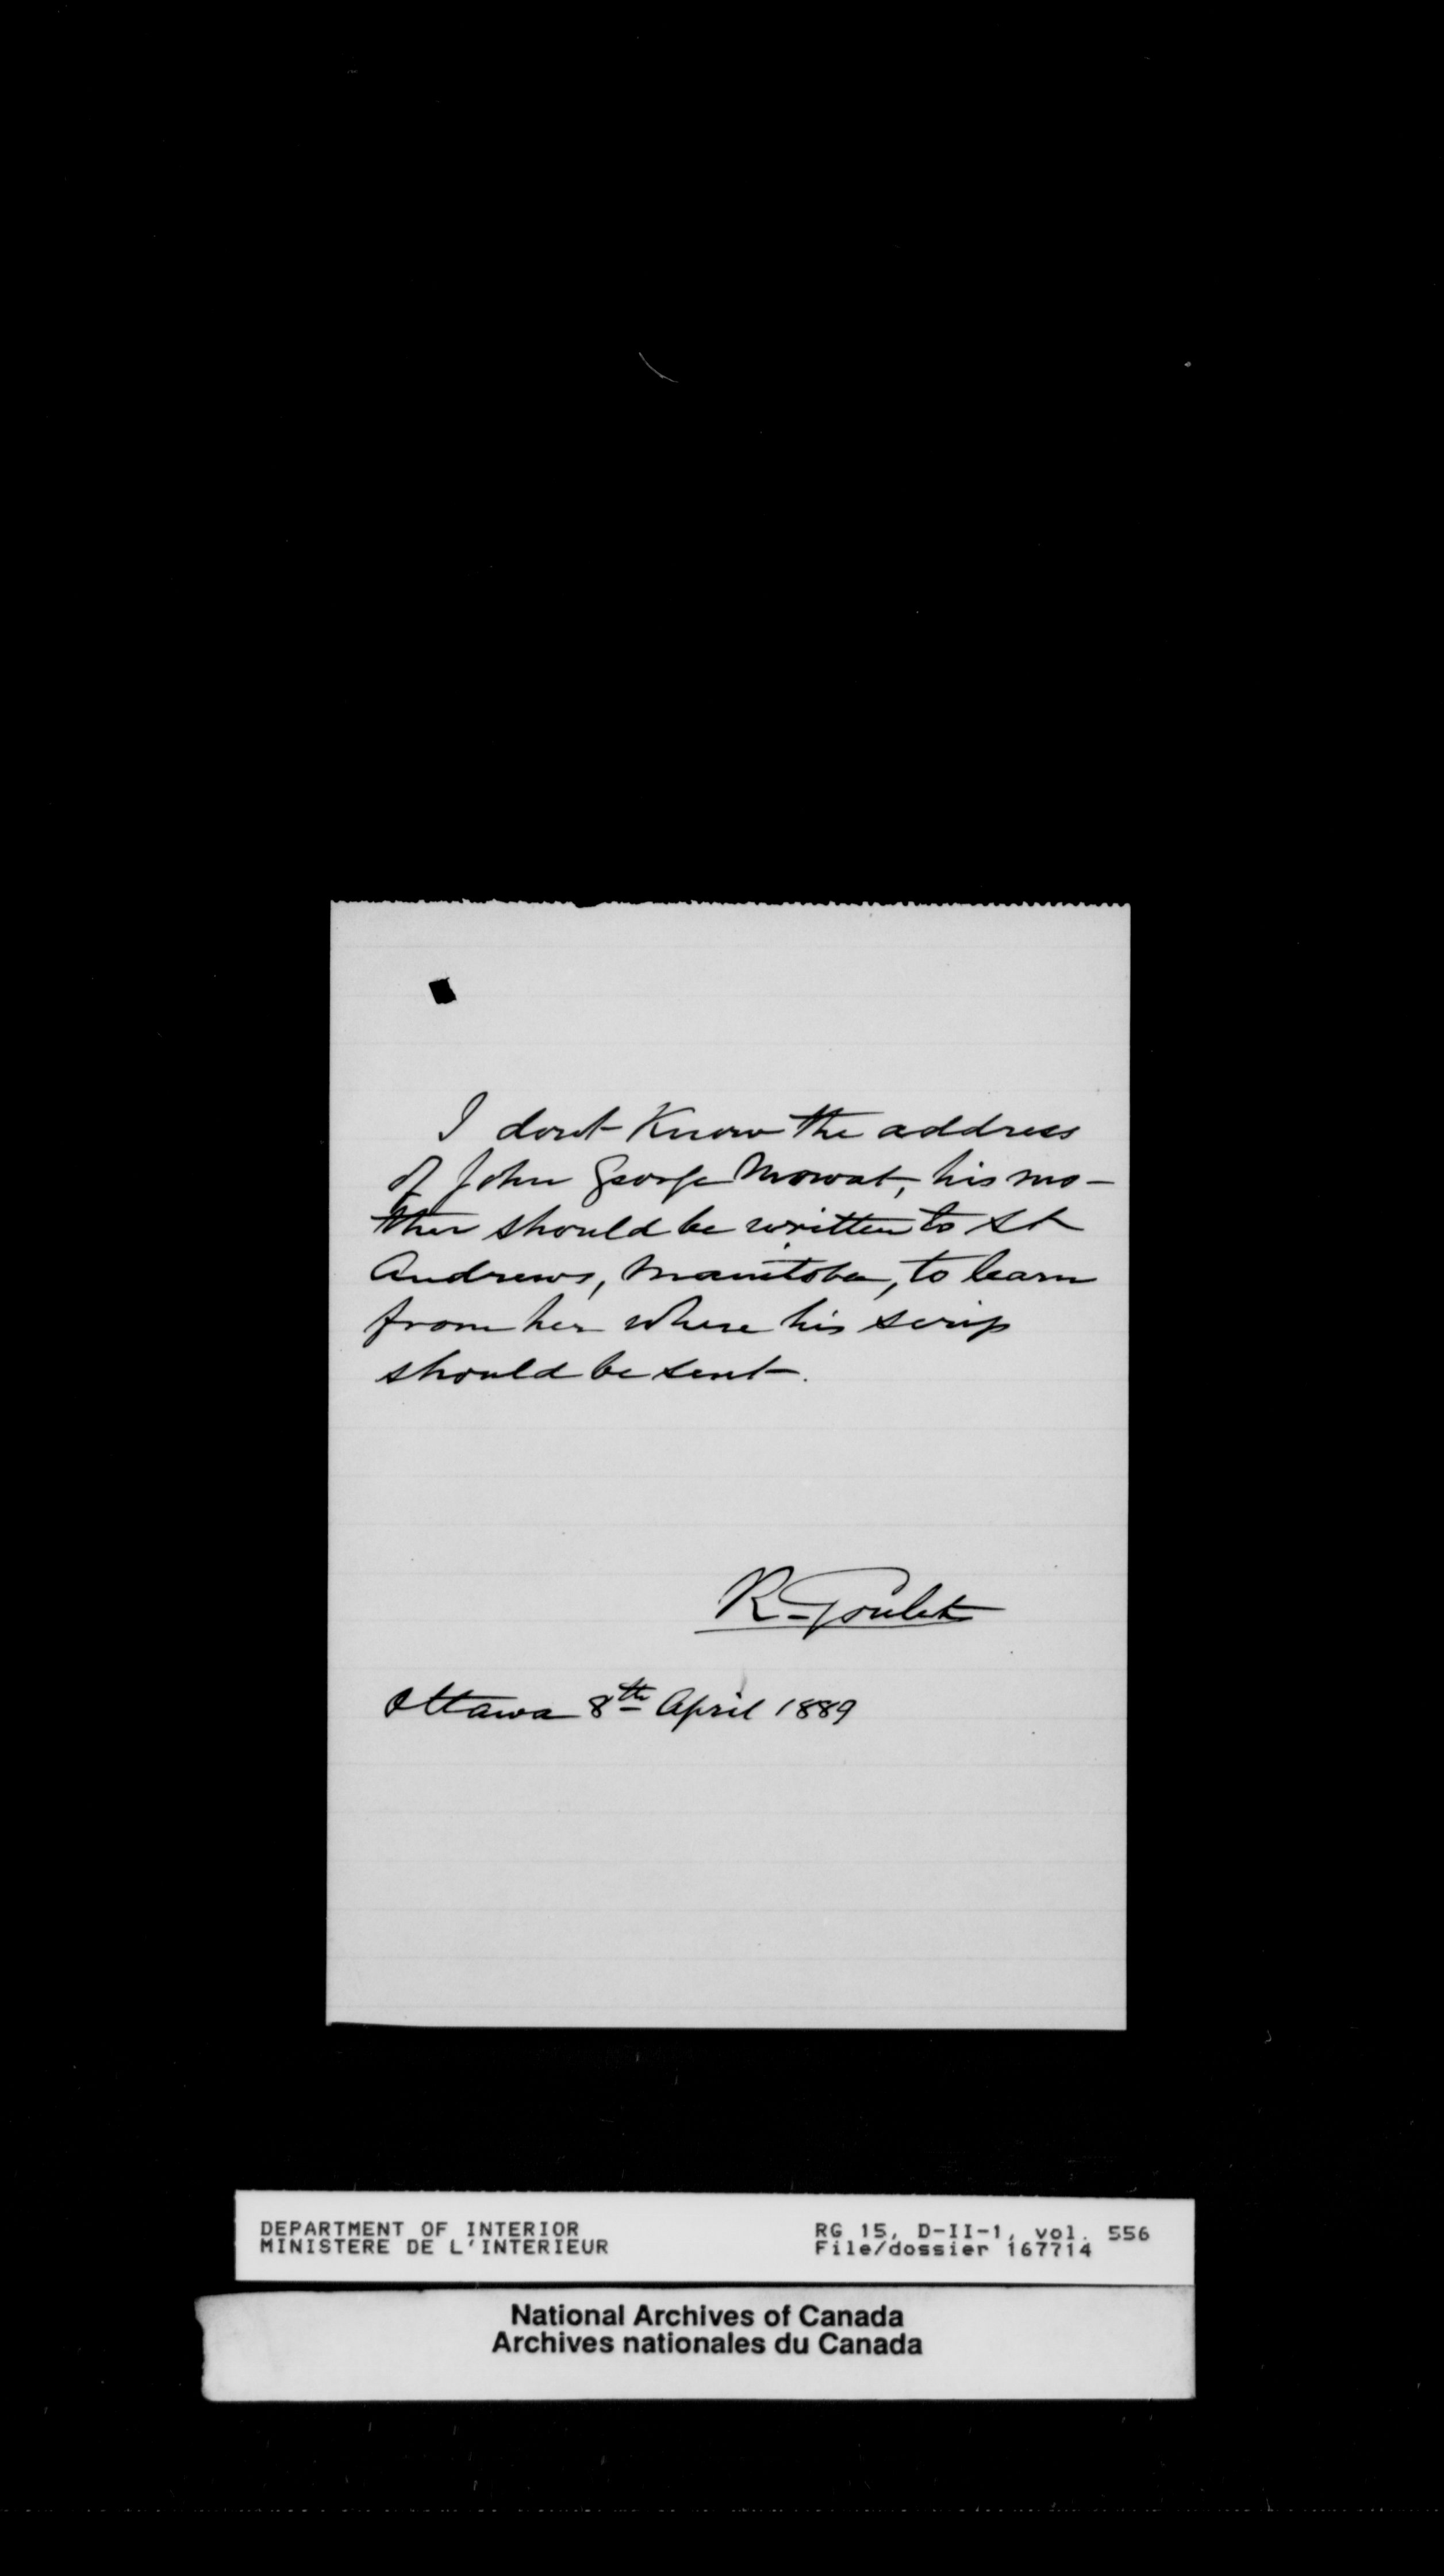 I dont Know the address
of John George Mowat, his mo-
ther should be written to St
Andrews, Manitoba, to learn
from her where his scrip
should be sent.
R. Goulet
Ottawa 8th April 1889
DEPARTMENT OF INTERIOR
MINISTERE DE L'INTERIEUR
RG 15, D-II-1, vol. 556
File/dossier 167714
National Archives of Canada
Archives nationales du Canada